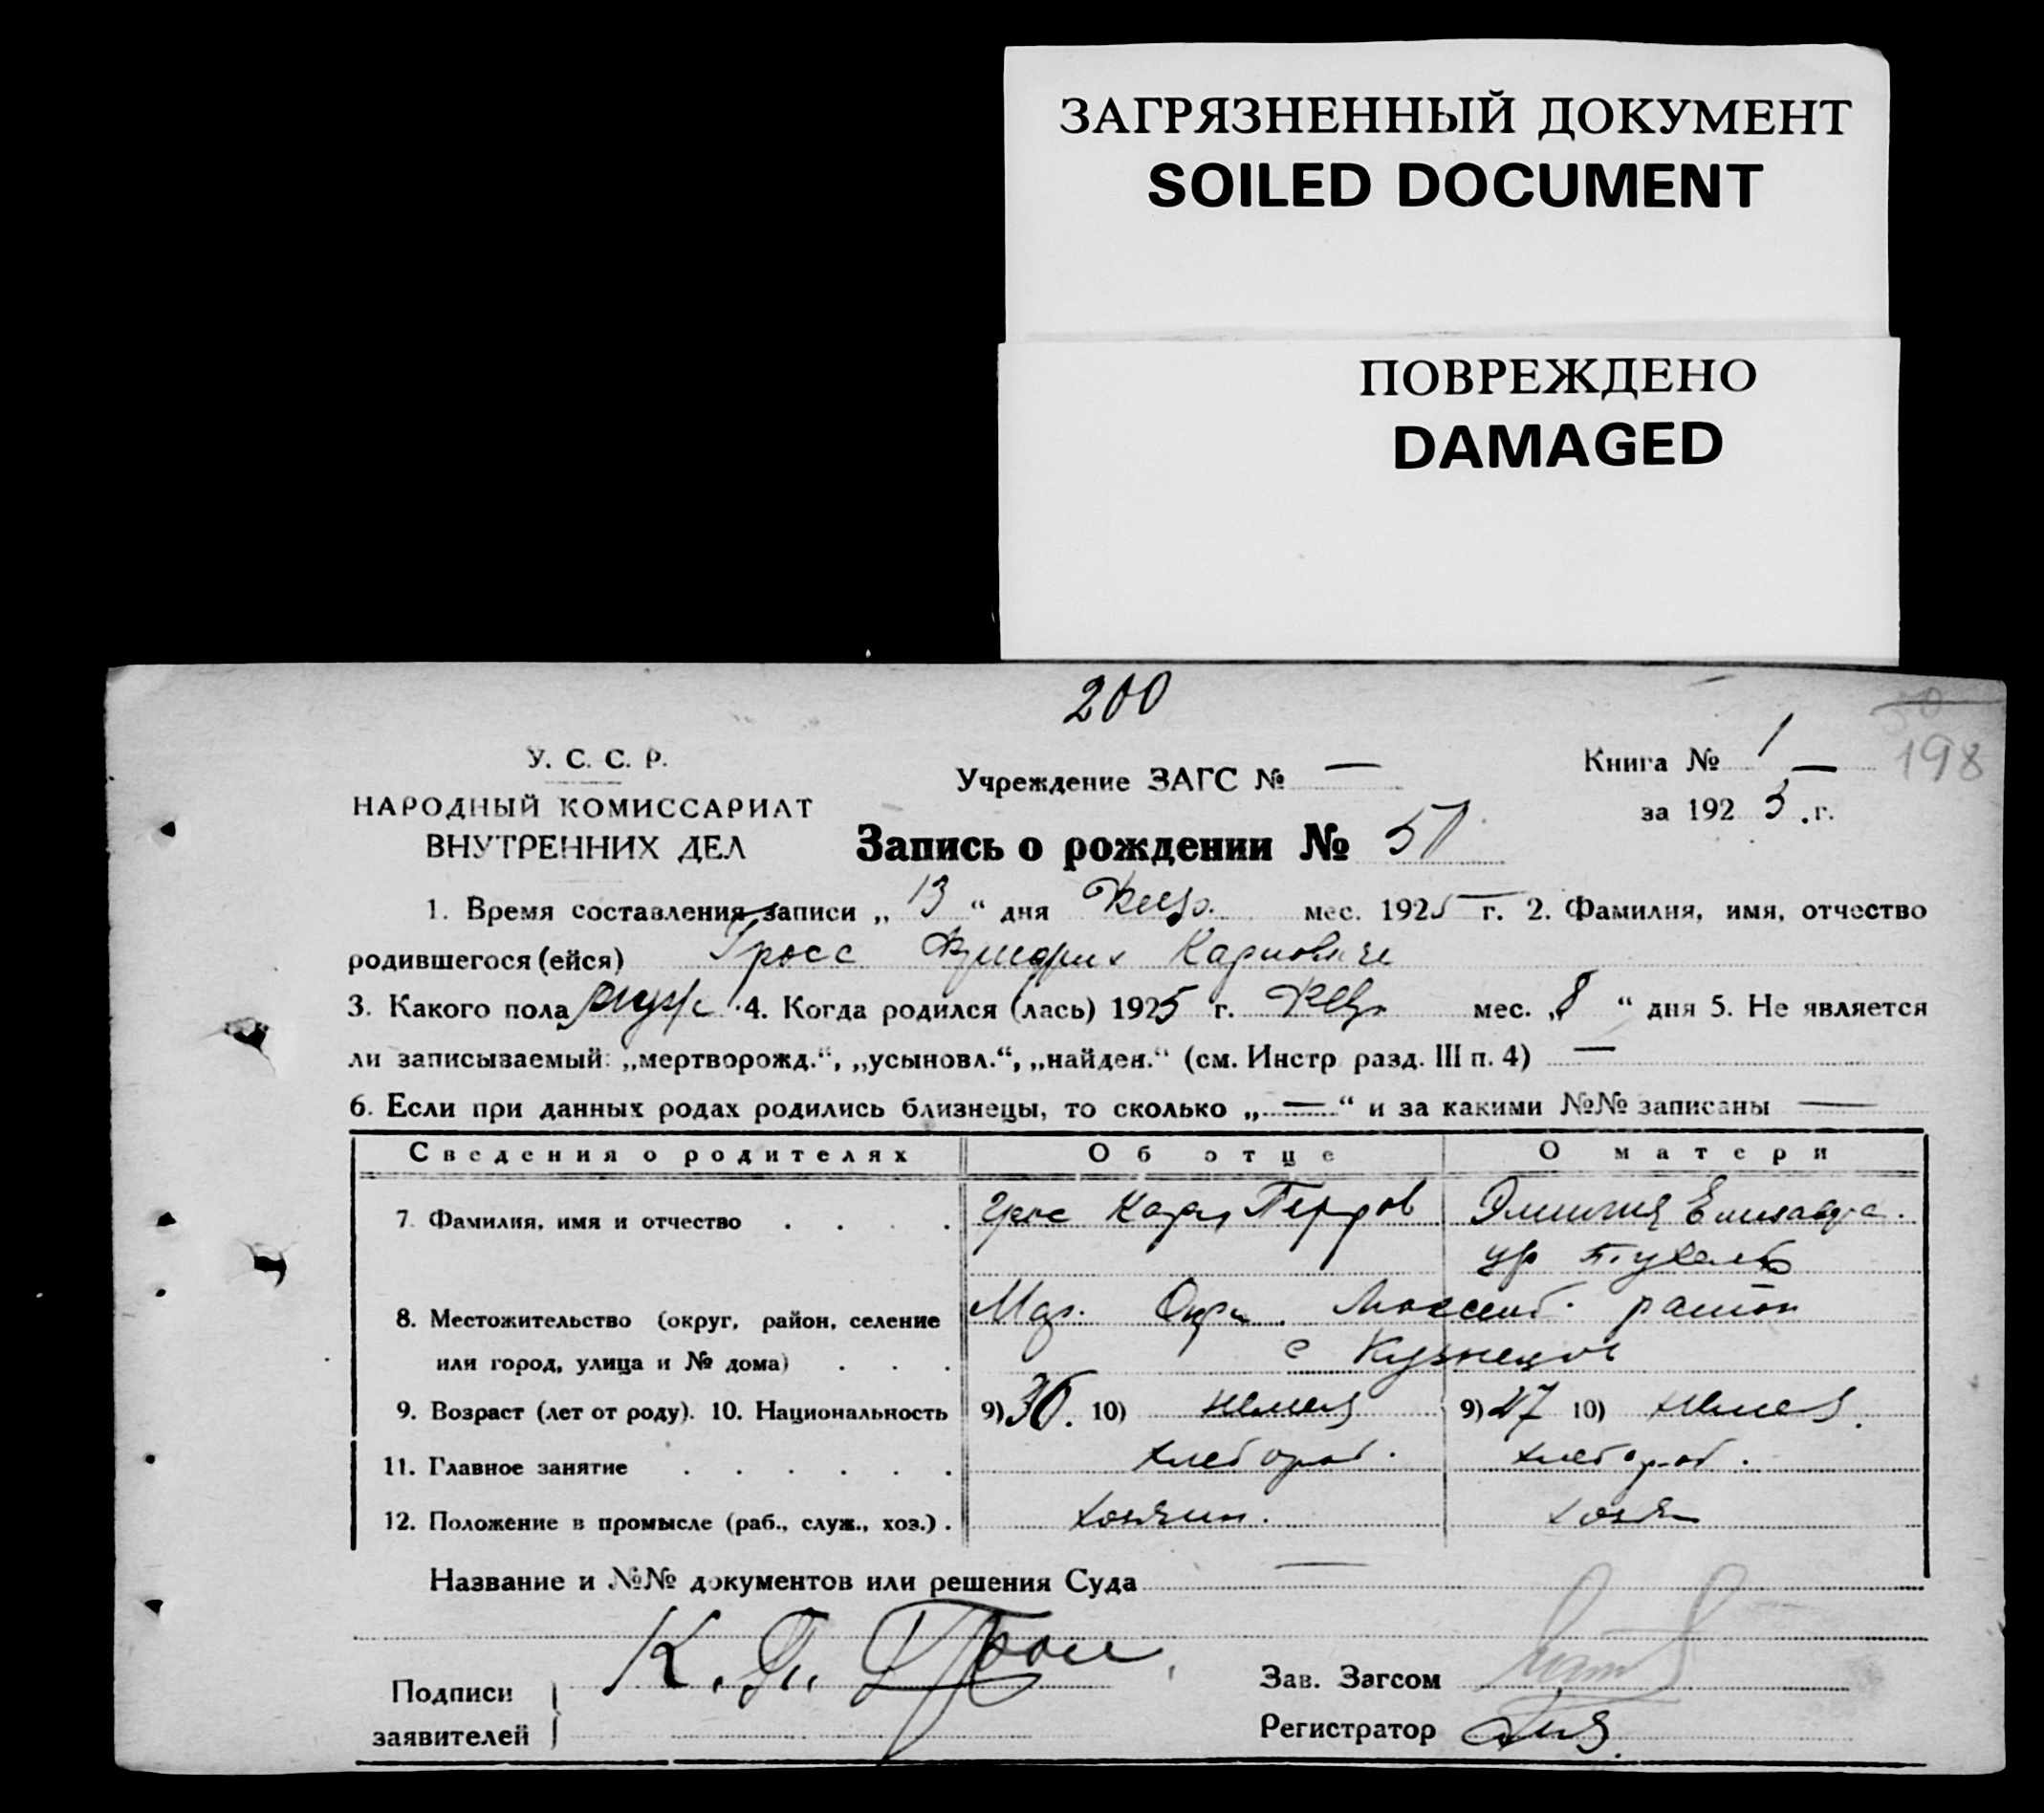 ЗАГРЯЗНЕННЫЙ ДОКУМЕНТ
SOILED DOCUMENT
ПОВРЕЖДЕНО
DAMAGED
200
198
У. С. С. Р.
НАРОДНЫЙ КОМИССАРИАТ
ВНУТРЕННИХ ДЕЛ
Учреждение ЗАГС № —
Книга № 1 —
за 1925 г.
Запись о рождении № 51
1. Время составления записи „ 13 “ дня мес. 1925 г. 2. Фамилия, имя, отчество
родившегося (ейся) Гросс Карлович
3. Какого пола муж 4. Когда родился (лась) 1925 г. мес. „8 “ дня 5. Не является
ли записываемый: „мертворожд.“, „усыновл.“, „найден.“ (см. Инстр разд. III п. 4) —
6. Если при данных родах родились близнецы, то сколько „—“ и за какими №№ записаны —
Сведения о родителях Об отце О матери
7. Фамилия, имя и отчество Грос Карл Петров Эмилия Елизавета.
ур
8. Местожительство (округ, район, селение Окр. район
или город, улица и № дома) с Кузнецов
9. Возраст (лет от роду). 10. Национальность 9) 30. 10) немец 9) 27 10) немец
11. Главное занятие хлебороб. хлебороб.
12. Положение в промысле (раб., служ., хоз.). хозяин. хозя
Название и №№ документов или решения Суда —
Подписи К. П. Гросс
заявителей
Зав. Загсом
Регистратор